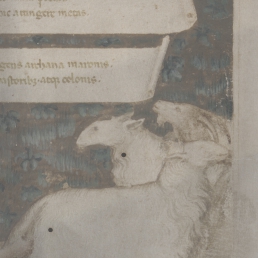 metas.
gens archana maronis.
storibȝ atqȝ colonis.